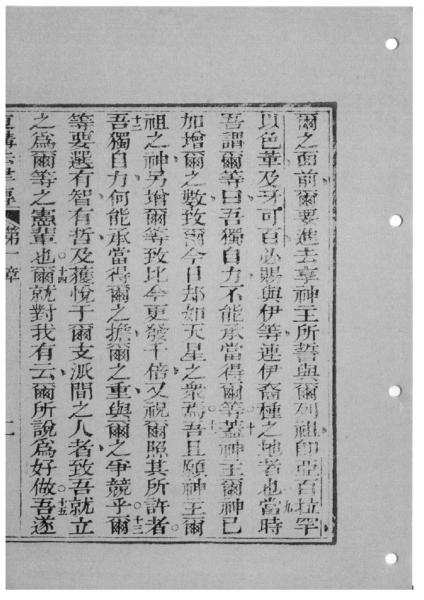 爾之面前爾要進去享神王所誓與爾列祖即亞百拉罕
以色革及牙可百必賜與伊等連伊裔種之地者也九當時
吾謂爾等曰吾獨自力不能承當得爾等十蓋神王爾神已
加增爾之數致爾今日却如天星之衆焉十一吾且願神王爾
祖之神另增爾等致比今更發千倍又祝爾照其所許者
十二吾獨自力何能承當得爾之擔爾之重與爾之爭競乎十三爾
等要選有智有哲及獲悅于爾支派間之人者致吾就立
之爲爾等之憲輩也十四爾就對我有云爾所說爲好做十五吾遂
講 第一章 二